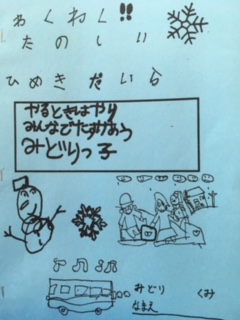 わくわく!!
たのしい
ひめきだいら
やるときはやり
みんなでたすけあう
みどりっ子
みどり くみ
なまえ